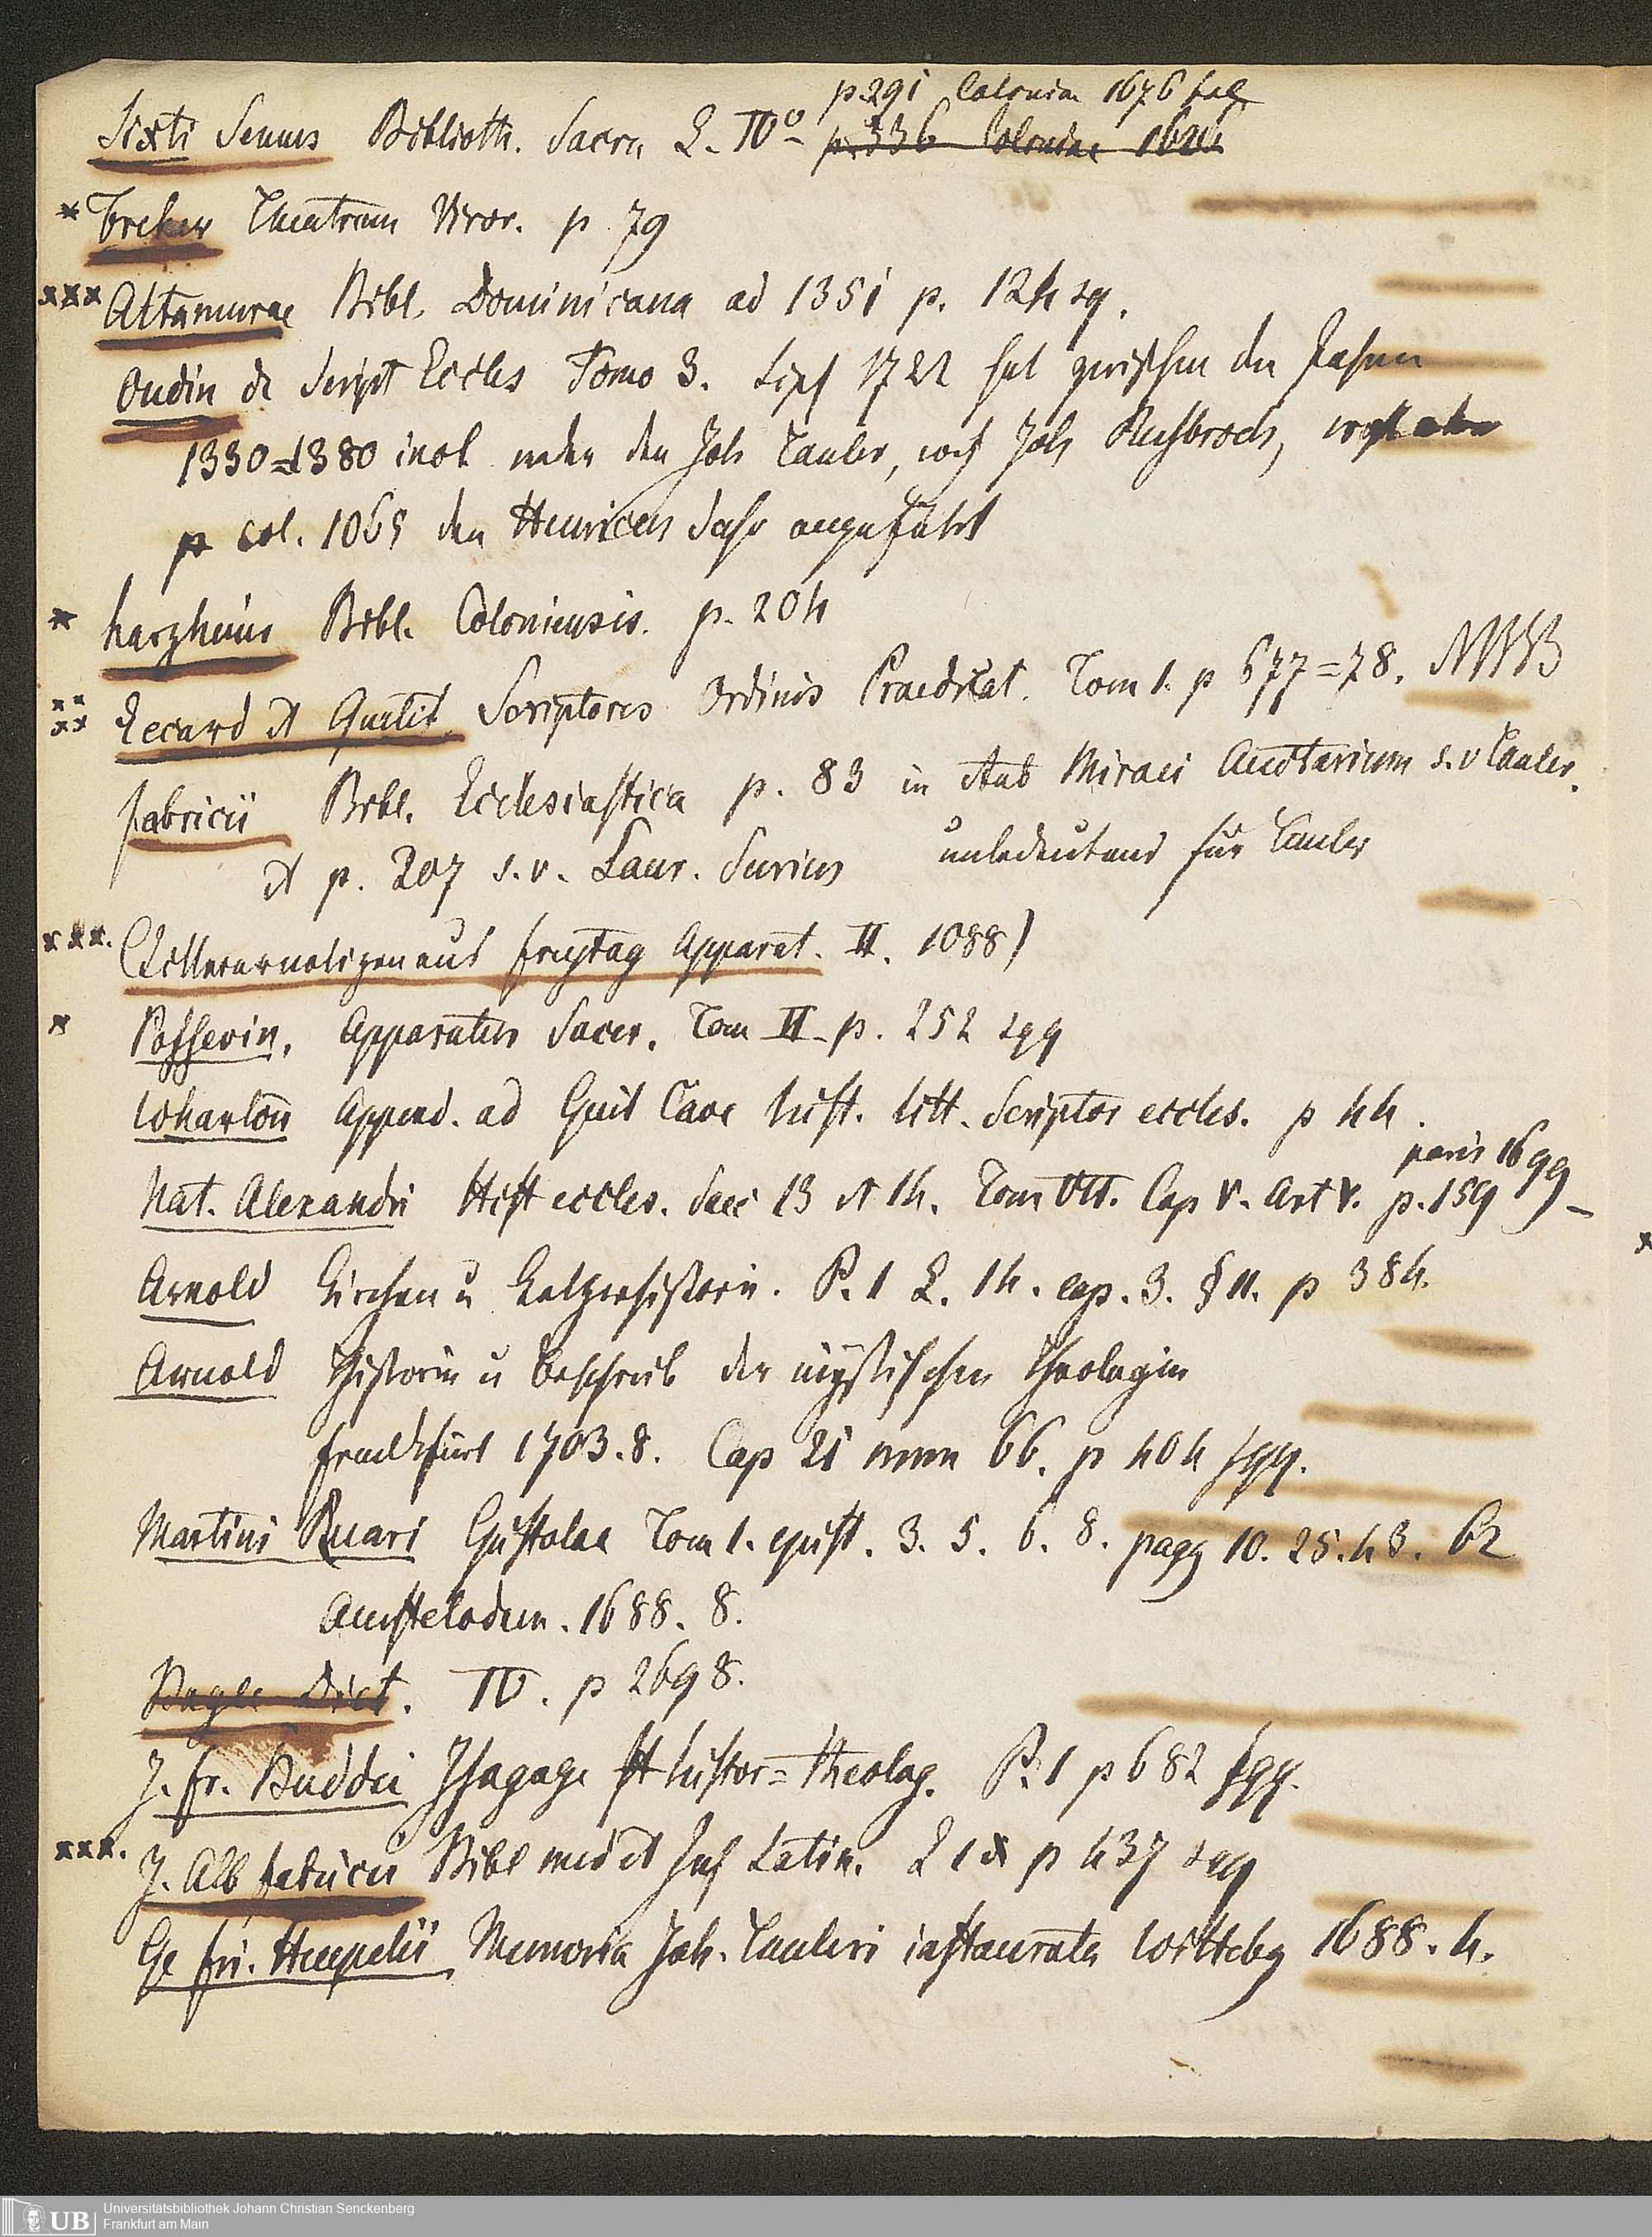 p. 291 Coloniae 1676 fol
Sixti Senens Biblioth. Sacra L. IVo p. 336 Coloniae 1626
* Freher Theatrum Viror. p. 79
*** Altamurae Bibl. Dominicana ad 1351 p. 124 sq.
Oudin de Script Eccles Tomo 3. Lips 1722 hat zwischen den Jahren
1330=1380 incl. weder den Joh Tauler, noch Joh Rusbroch,
p col. 1065 den Henricus Suso angeführt
* Harzheim Bibl. Coloniensis. p. 204
** ** Eccard et Quetif Scriptores Ordinis Praedicat. Tom 1. p 677=78. NBBB
Fabricii Bibl. Ecclesiastica p. 83 in Aub Miraei Auctarium s.v Tauler.
et p. 207 s.v. Laur. Surius unbedeutend für Tauler
***. (Litterarnotizen aus Freytag Apparat. II. 1088)
* Possevin. Apparatus Sacer. Tom II. p. 252 sqq
Wharton Append. ad Guil Cave hist. litt. Scriptor eccles. p 44.
paris 1699
Nat. Alexandri Hist eccles. Saec 13 et 14. Tom VII. Cap V. Art V. p. 159
Arnold Kirchen u Ketzerhistorie. P. 1 L. 14. cap. 3. § 11. p 384.
Arnold Historie u Beschreib der mystischen Theologie
Frankfurt 1703. 8. Cap 21 num 66. p 404 sqq.
Martini Ruari Epistolae Tom 1. epist. 3. 5. 6. 8. pagg 10. 25. 43. 62
Amstelodum. 1688. 8.
Bayle Dict. IV. p 2698.
J. Fr. Buddei Isagoge histor=theolog. P. 1 p 682 sqq.
***. J. Alb Fabricii Bibl med et Inf Latin. L p 437 sqq
Ge Fri. Heupelii Memoria Joh. Tauleri instaurata Wittebg 1688. 4.
UB Universitätsbibliothek Johann Christian Senckenberg
Frankfurt am Main